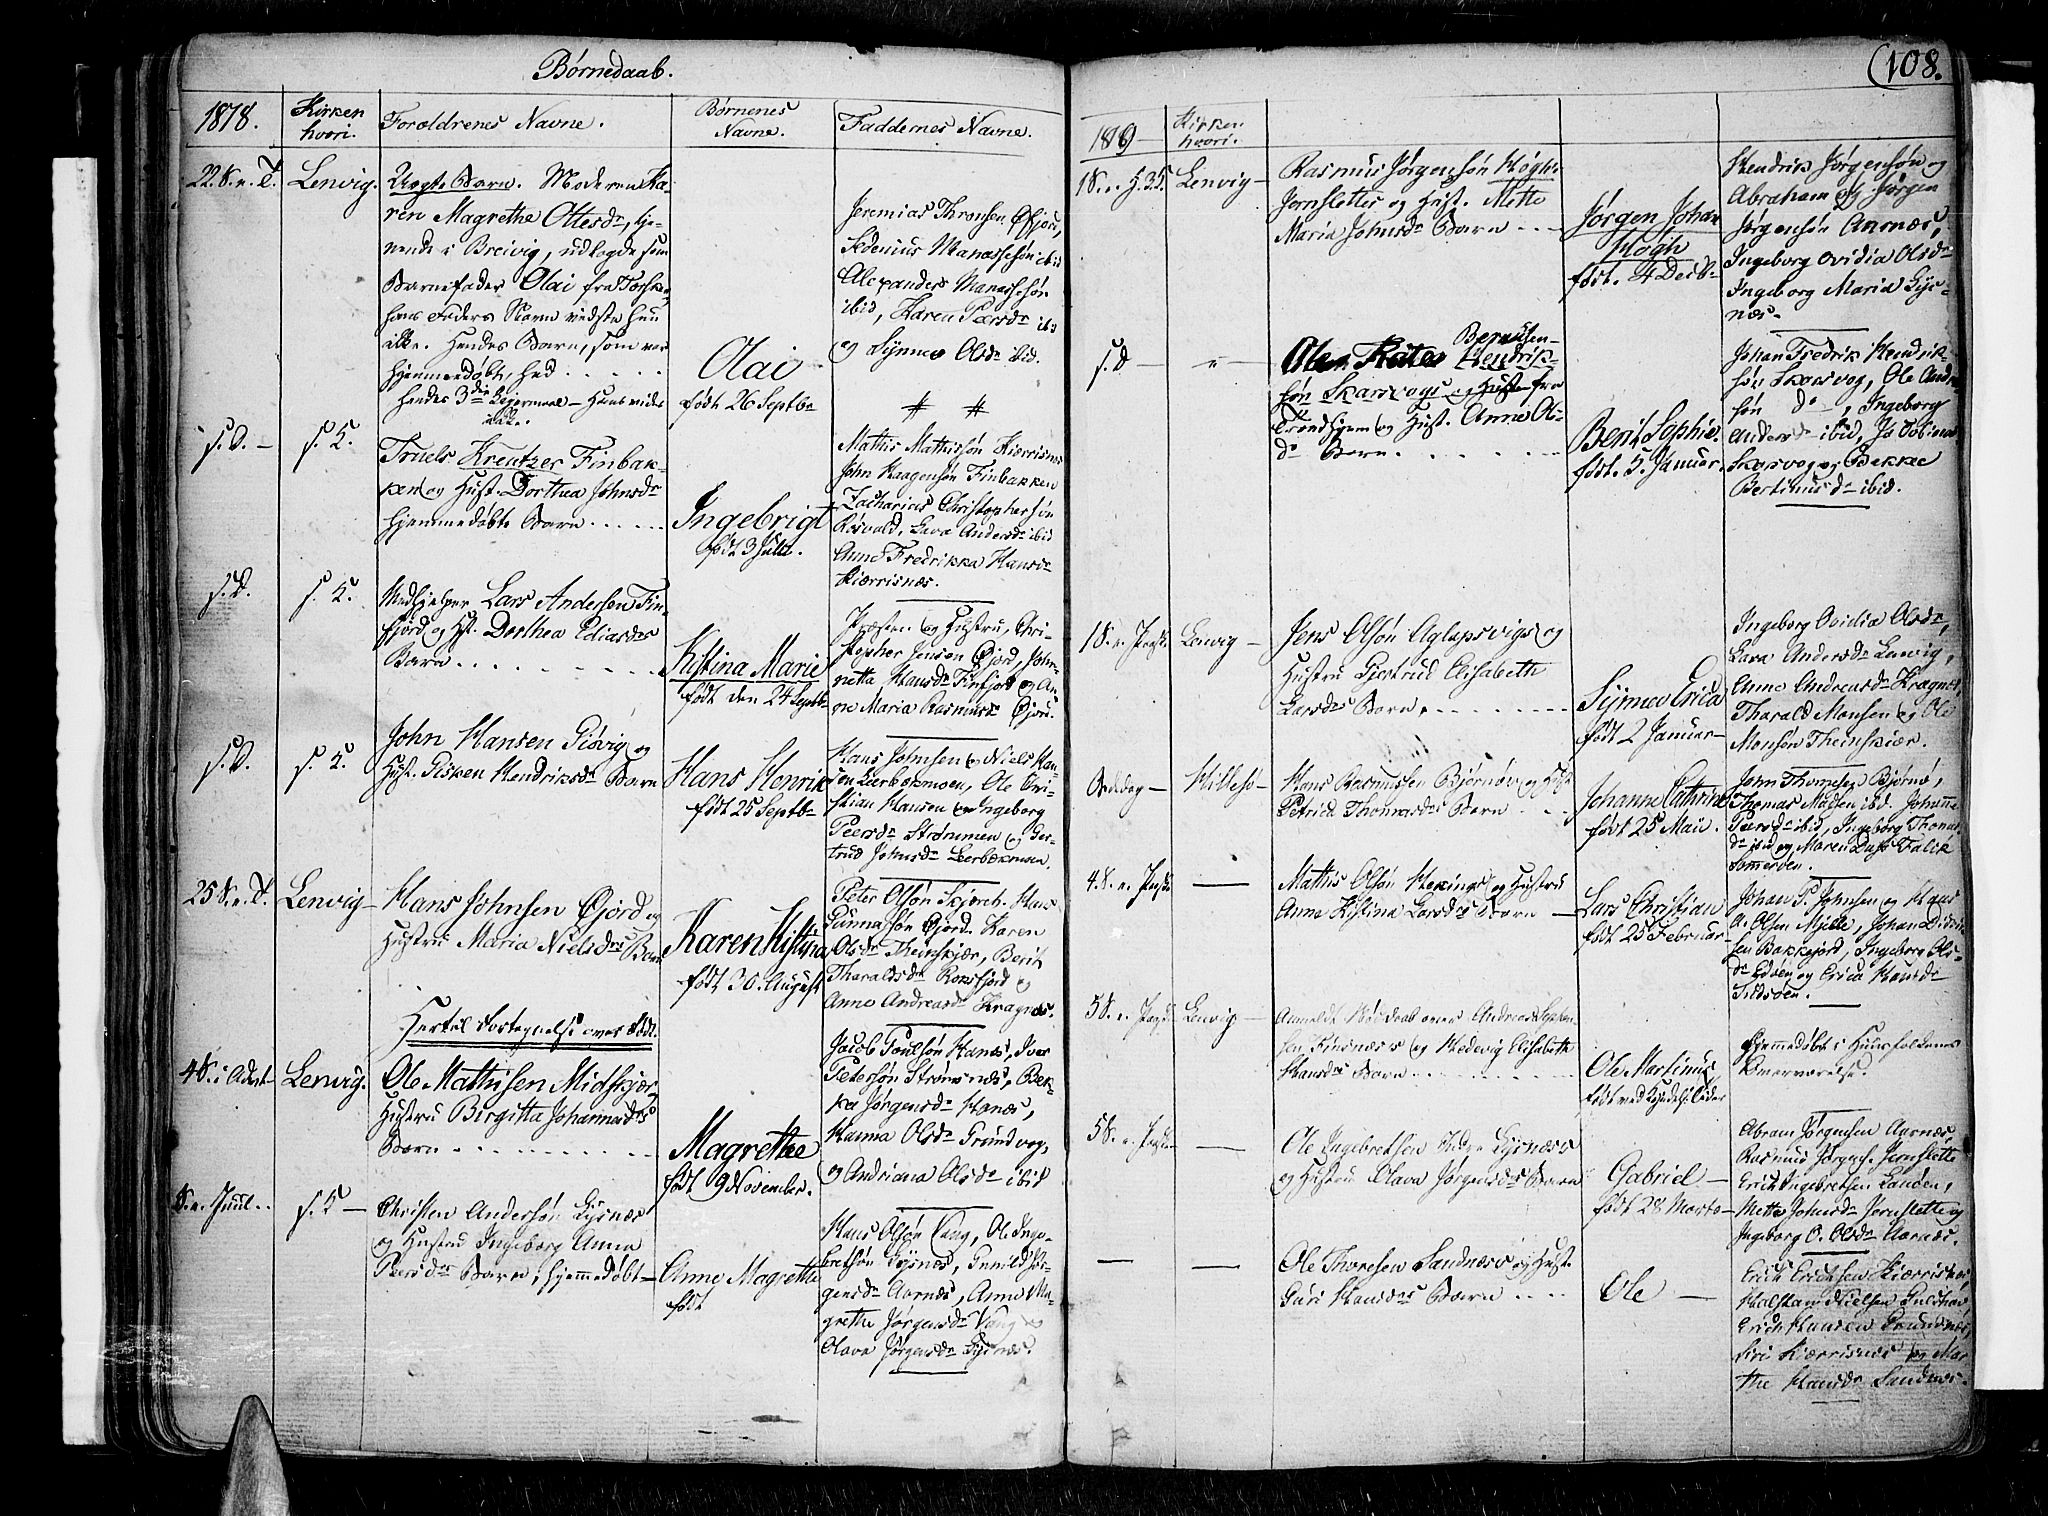 Børnedaab.
1818.
Kirken
hvori.
Forældrenes Navne.
Børnenes
Navne.
Faddernes Navne.
22. S. e. T.
Lenvig.
Uægte Barn. Moderen Ka-
ren Magrethe Olsdr, tje-
nende i Breivig, udlagde som
Barnefader Olai fra Torsken
hans Faders Navn vidste hun
ikke. Hendes Barn, som var
hjemmedøbt, hed
Hendes 3die Leiermaal
Olai
født 26 Septbr
Jeremias Thronsen Øfjord,
Manassesøn ibid
Alexander Manassesøn
ibid, Karen Peersdr ibid
og Synnev Olsdr ibid.
s. D.
s. K.
Truels Kreutzer Finbak-
ken og Hust. Dorthea Johnsdr
hjemmedøbte Barn
Ingebrigt
født 3 Julii.
Mathis Mathissøn Kiærrisnes
John Haagensøn Finbakken
Zacharias Christophersøn
Rosvold, Lava Andersdr ibid
Anne Fredrikka Hansdr
Kiærrisnæs.
s. D.
s. K.
Medhjelper Lars Andersen Fin-
fjord og Hst. Dorthea Eliasdr
Barn
Kistina Marie
født den 24 Septbr
Præsten og Hustru, Chri-
stopher Jensen Øjord, John-
netta Hansdr Finfjord og An-
ne Maria Rasmusdr Øjord.
s. D.
s. K.
John Hansen Giøvig og
Hust. Gisken Hendriksdr Barn
Hans Henrik
født 25 Septbr
Hans Johnsen og Niels Han-
sen Leerbækmoen, Ole Chri-
stian Hansen og Ingeborg
Peersdr Strømmen og Ger-
trud Johnsdr Leerbækmoen.
25 S. e. T.
Lenvig
Hans Johnsen Øjord og
Hustru Maria Nielsdrs Barn
Karen Kistina
født 30. August
Peter Olsøn Skjæret. Hans
Gunnarsøn Øjord. Karen
Olsdr Theinskjær, Berit
Tharaldsdr Rossfjord og
Anne Andreasdr Kragnæs.
Hertil Fortegnelse over Født.
4 S. i Advt
Lenvig.
Ole Mathisen Midskjær
Hustru Birgitta Johannasdrs
Barn
Magrethe
født 9 November.
Jacob Poulsøn Hanæs, Iver
Petersøn Strømsnæs, Bek-
ka Jørgensdr Hanæs,
Hanna Olsdr Grundvog,
og Andriana Olsdr ibid
S. e. Juul.
s. K
Christen Andersøn Lysnæs
og Hustru Ingeborg Anna
Peersdrs Barn, hjemmedøbt
Anne Magrethe
født
Hans Olsøn Vang, Ole Inge-
bretsøn Lysnæs, Gunild Jør-
gensdr Aarnæs, Anne Ma-
grethe Jørgensdr Vang og
Olava Jørgensdr Lysnæs.
(108.
1819
Kirken
hvori.
Lenvig
Rasmus Jørgensøn Høgh
Jernsletter og Hust. Mette
Maria Johnsdr Barn
Jørgen Johan
Høgh
født. 4 Decbr
Hendrik Jørgensøn og
Abraham og Jørgen
Jørgensøn Aarnæs,
Ingeborg Ovidia Olsdr
Ingeborg Maria Lys-
næs.
s. D
Berntsen
Hendrik-
søn Skarsvog og Hust. fra
Trondhjem og Hust. Anne Ols-
dr Barn.
Berit Sophie.
født. 5. Januar.
Johan Fredrik Hendrik-
søn Skarsvog, Ole Andr
søn do, Ingeborg
Andersdr ibid,
Skarsvog og Bekka
Bertinusdr ibid.
1 S. e. Paaske
Lenvig
Jens Olsøn Aglapsvig og
Hustru Gjertrud Elisabeth
Larsdrs Barn,
Synnev Erica
født 2 Januar
Ingeborg Ovidia Olsdr,
Lava Andersdr Lenvig,
Anne Andreasdr Kragnæs,
Tharald Monsen og Ole
Monsøn Theinskiær.
Bededag
Hillesø
Hans Rasmussen Bjørnøe og Hust
Petrica Thomasdrs Barn
Johanne Cathrine
født 25 Mai.
John Thomesen Bjørnø,
Thomas Madsen ibid. Johanne
Peersdr ibid, Ingeborg Thomas
dr ibid og Maren Dass Falck
Sommerøen.
4. S. e. Paaske
Mathis Olsøn Hekingen og Hustru
Anne Kistina Larsdrs Barn
Lars Christian
født 25 Februar
Johan P. Johnsen og Hans
A. Olsen Mjelle, Johan Didrik
sen Bakkejord, Ingeborg Ols-
dr Edøen og Erica Hansdr
Sildsøen.
5 S. e. Paaske
Lenvig
Anmeldt Hiemedaab over Andreas Jeppe-
sen Finsnæs's og Hedevig Elisabeth
Hansdrs Barn
Ole Martinus
født ved Kyndelsmisse
Hjemmedøbt i Huusfolkenes
Overværelse.
5 S. e. Paaske
Ole Ingebretsen Indre Lysnæs's
og Hustru Olava Jørgensdrs Barn
Gabriel
født 28 Marts
Abram Jørgensen Aarnæs,
Rasmus Jørgens. Jernslette
Erich Ingebretsen Sanden,
Mette Johnsdr Jernslette og
Ingeborg O. Olsdr Aarnæs.
Ole Thoresen Sandnæs og Hust.
Guri Hansdrs Barn
Ole
Erich Erichsen Kiærrisnæs
Halstan Nielsen Guldhav,
Erich Hansen Grundnæs,
Siri Kiærrisnæs og Mar-
the Hansdr Sandnæs.